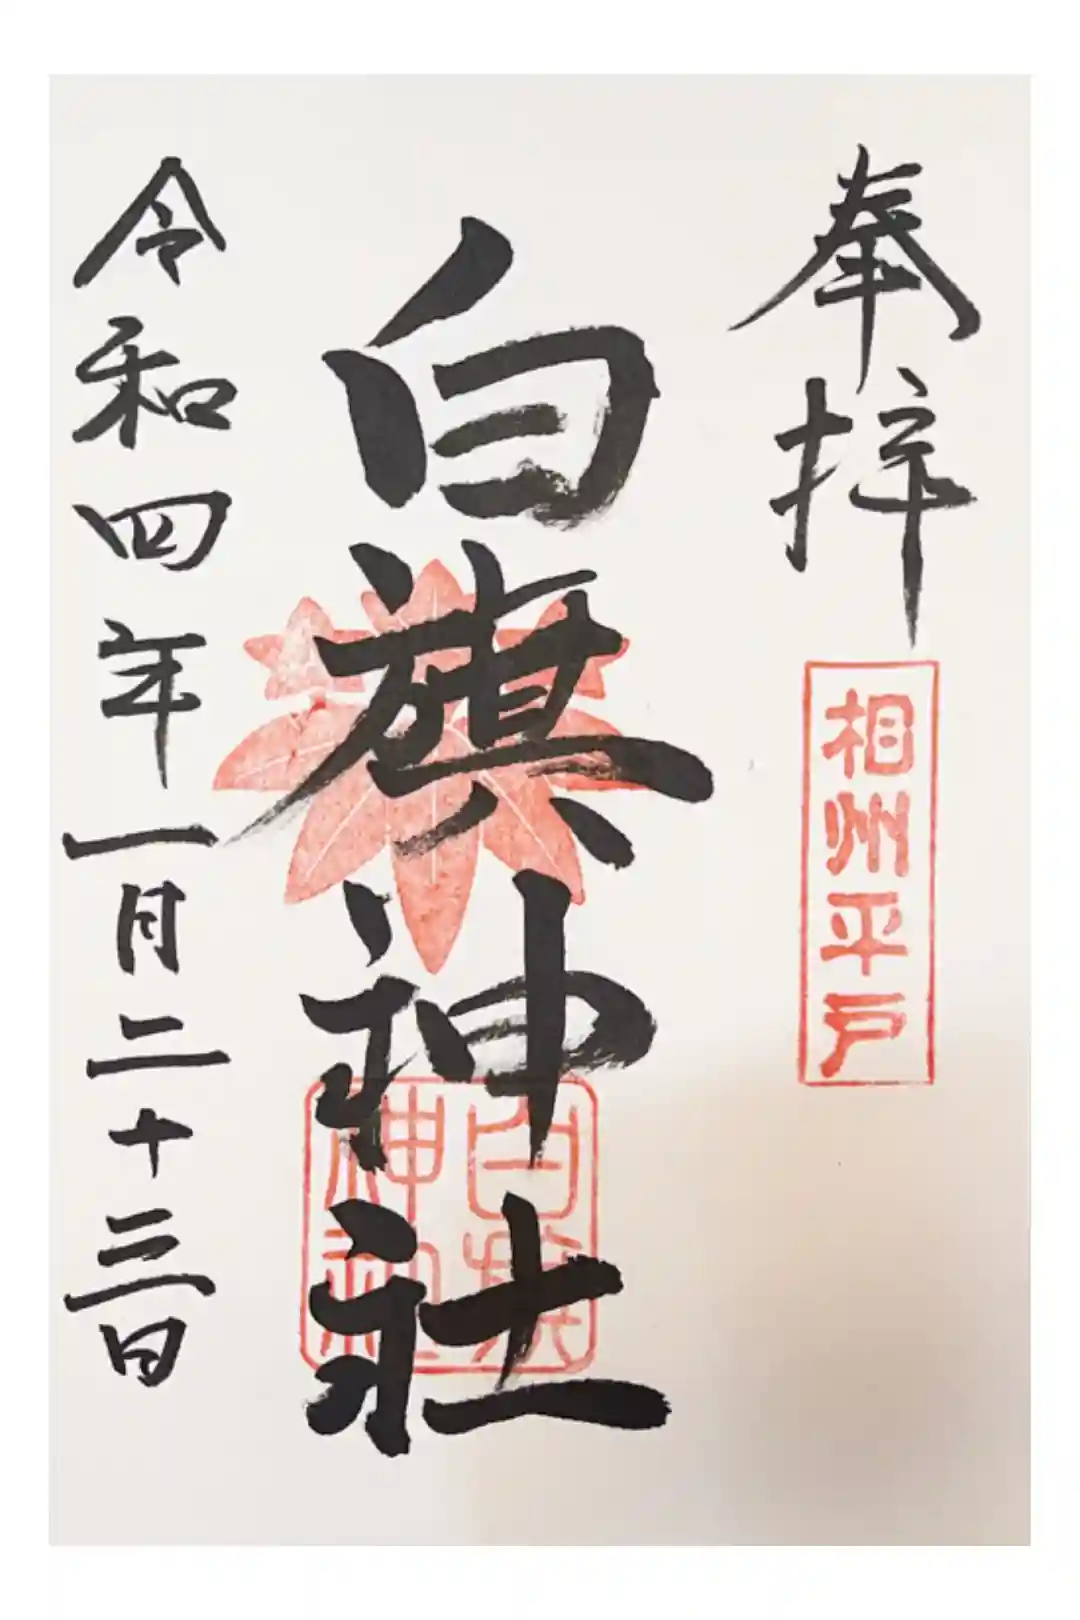 奉拝
相州平戸
白旗神社
白旗
神社
令和四年一月二十三日